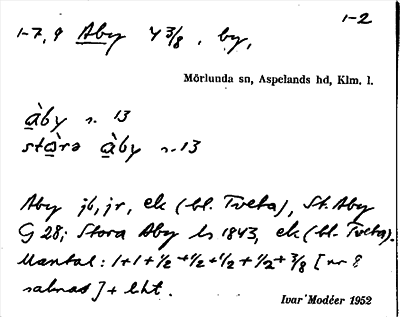 1-2
1-7, 9 Aby 4 3/8. by,
Mörlunda sn, Aspelands hd, Klm. l.
àby n. 13
stòra àby n. 13
Aby jb, jr, ek (bl. Tveta), St. Aby
G 28; Stora Aby ls 1843, ek (bl. Tveta).
Mantal: 1+1+1/2+1/2+1/2+1/2+3/8 [nr 8
saknas] + lht.
Ivar Modéer 1952